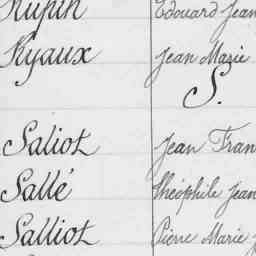 Rupin Edouard Jean
Ryaux Jean Marie
S.
Saliot Jean Fran
Sallé Théophile Jean
Salliot Pierre Marie J